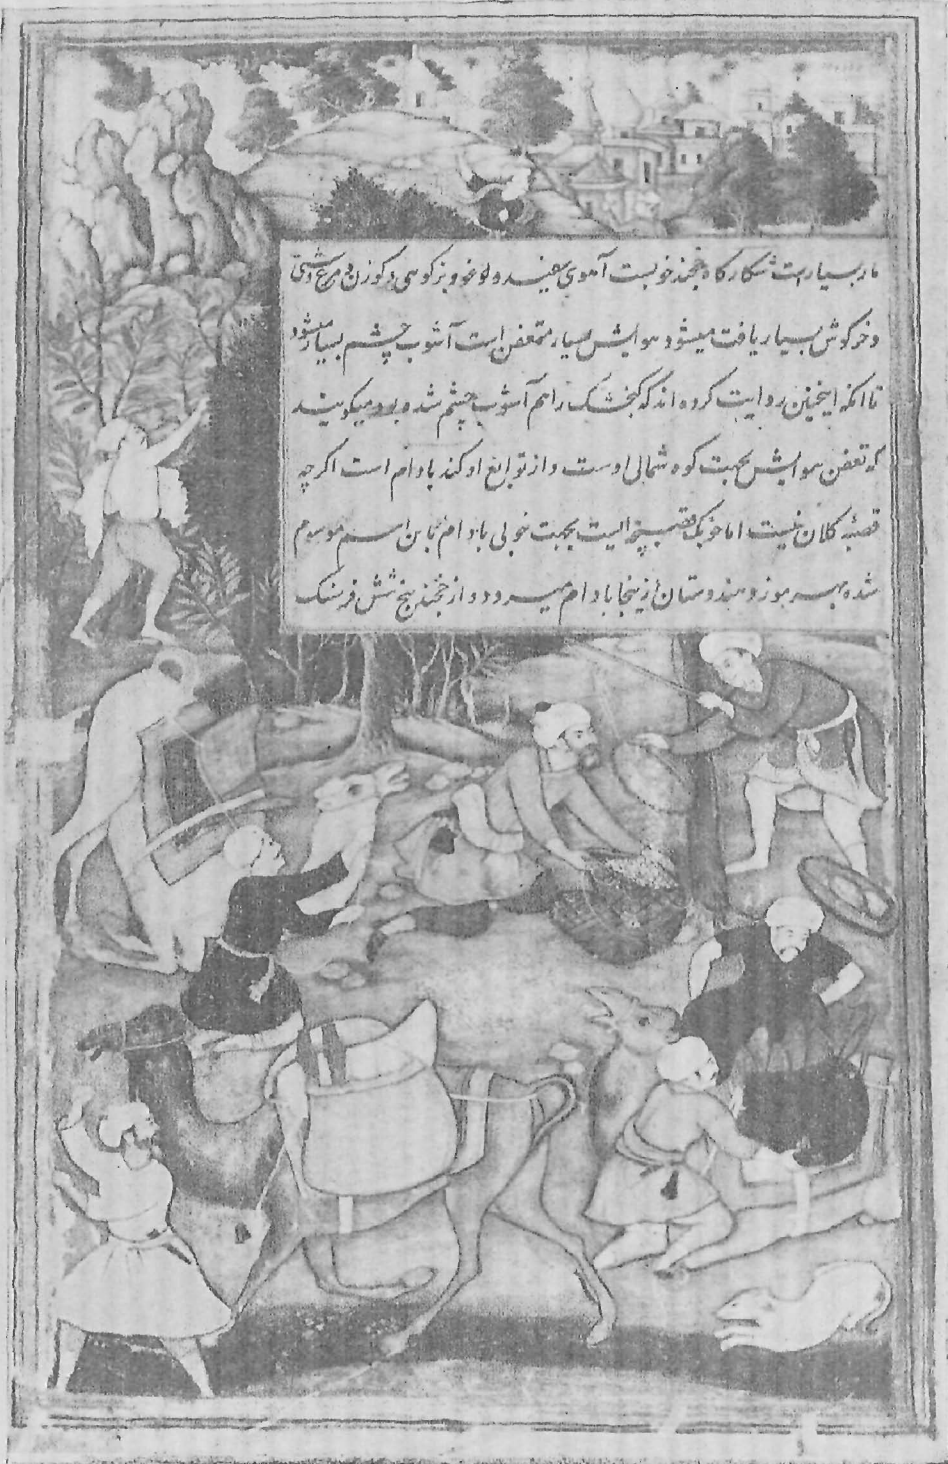 مار بسیار است شکارگاه خجند خوبست آهوی سفید و بز کوهی و کوزن و مرغ دشتی
و خرکوش بسیار یافت میشود هوایش بسیار متعفن است آشوب چشم بسیار میشود
تا انکه اینچنین روایت کرده اند که کنجشک را هم آشوب چشم شده بود میکویند
که تعفن هوایش بجهت کوه شمالی اوست و از توابع او کند بادام است اکرچه
قصبهٔ کلان نیست اما خوبک قصبچه ایست بجهت خوبی بادام باین اسم موسوم
شده بهرموز و هندوستان ازینجا بادام میرود و از خجند پنج شش فرسنک